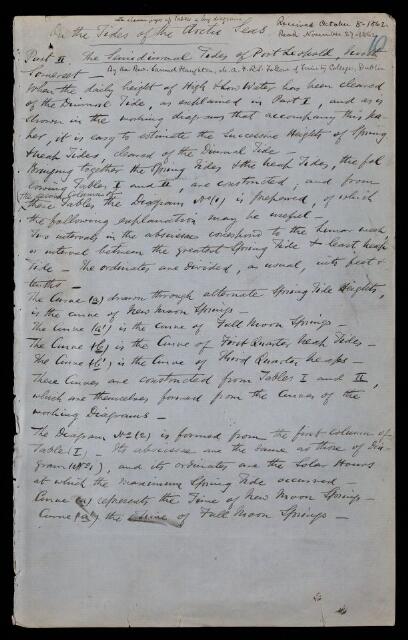 eleven pages of Tables & six diagrams
Received October 8-1862.
On the Tides of the Arctic Seas
Read November 27-1862
Part II. The Semidiurnal Tides of Port Leopold, North
Somerset — By the Rev. Samuel Haughton, M.A. F.R.S. Fellow of Trinity College, Dublin
When the daily height of High & Low Water has been cleared
of the Diurnal Tide, as explained in Part I, and as is
shown in the working diagrams that accompany this pa-
per, it is easy to estimate the Successive Heights of Spring
& Neap Tides, cleared of the Diurnal Tide —
Bringing together the Spring Tides & the Neap Tides, the fol
lowing Tables I and II, are constructed; and from
the second columns of
these Tables the Diagram No (1) is prepared, of which
the following explanation may be useful —
Two intervals in the abscissae correspond to the lunar week
or interval between the greatest Spring Tide & least Neap
Tide — The ordinates are divided, as usual, into feet &
tenths —
The Curve (a) drawn through alternate Spring Tide Heights,
is the curve of New Moon Springs —
The Curve (a') is the Curve of Full Moon Springs
The Curve (b) is the Curve of First Quarter Neap Tides —
The Curve (b') is the Curve of Third Quarter Neaps —
These Curves are constructed from Tables I and II,
which are themselves formed from the Curves of the
working Diagrams —
The Diagram No (2) is formed from the first column of
Table (I) — Its abscissae are the same as those of Dia-
gram (No 1), and its ordinates are the Solar Hours
at which the maximum Spring Tide occurred —
Curve (a) represents the Time of New Moon Springs —
Curve (a') the Time of Full Moon Springs —